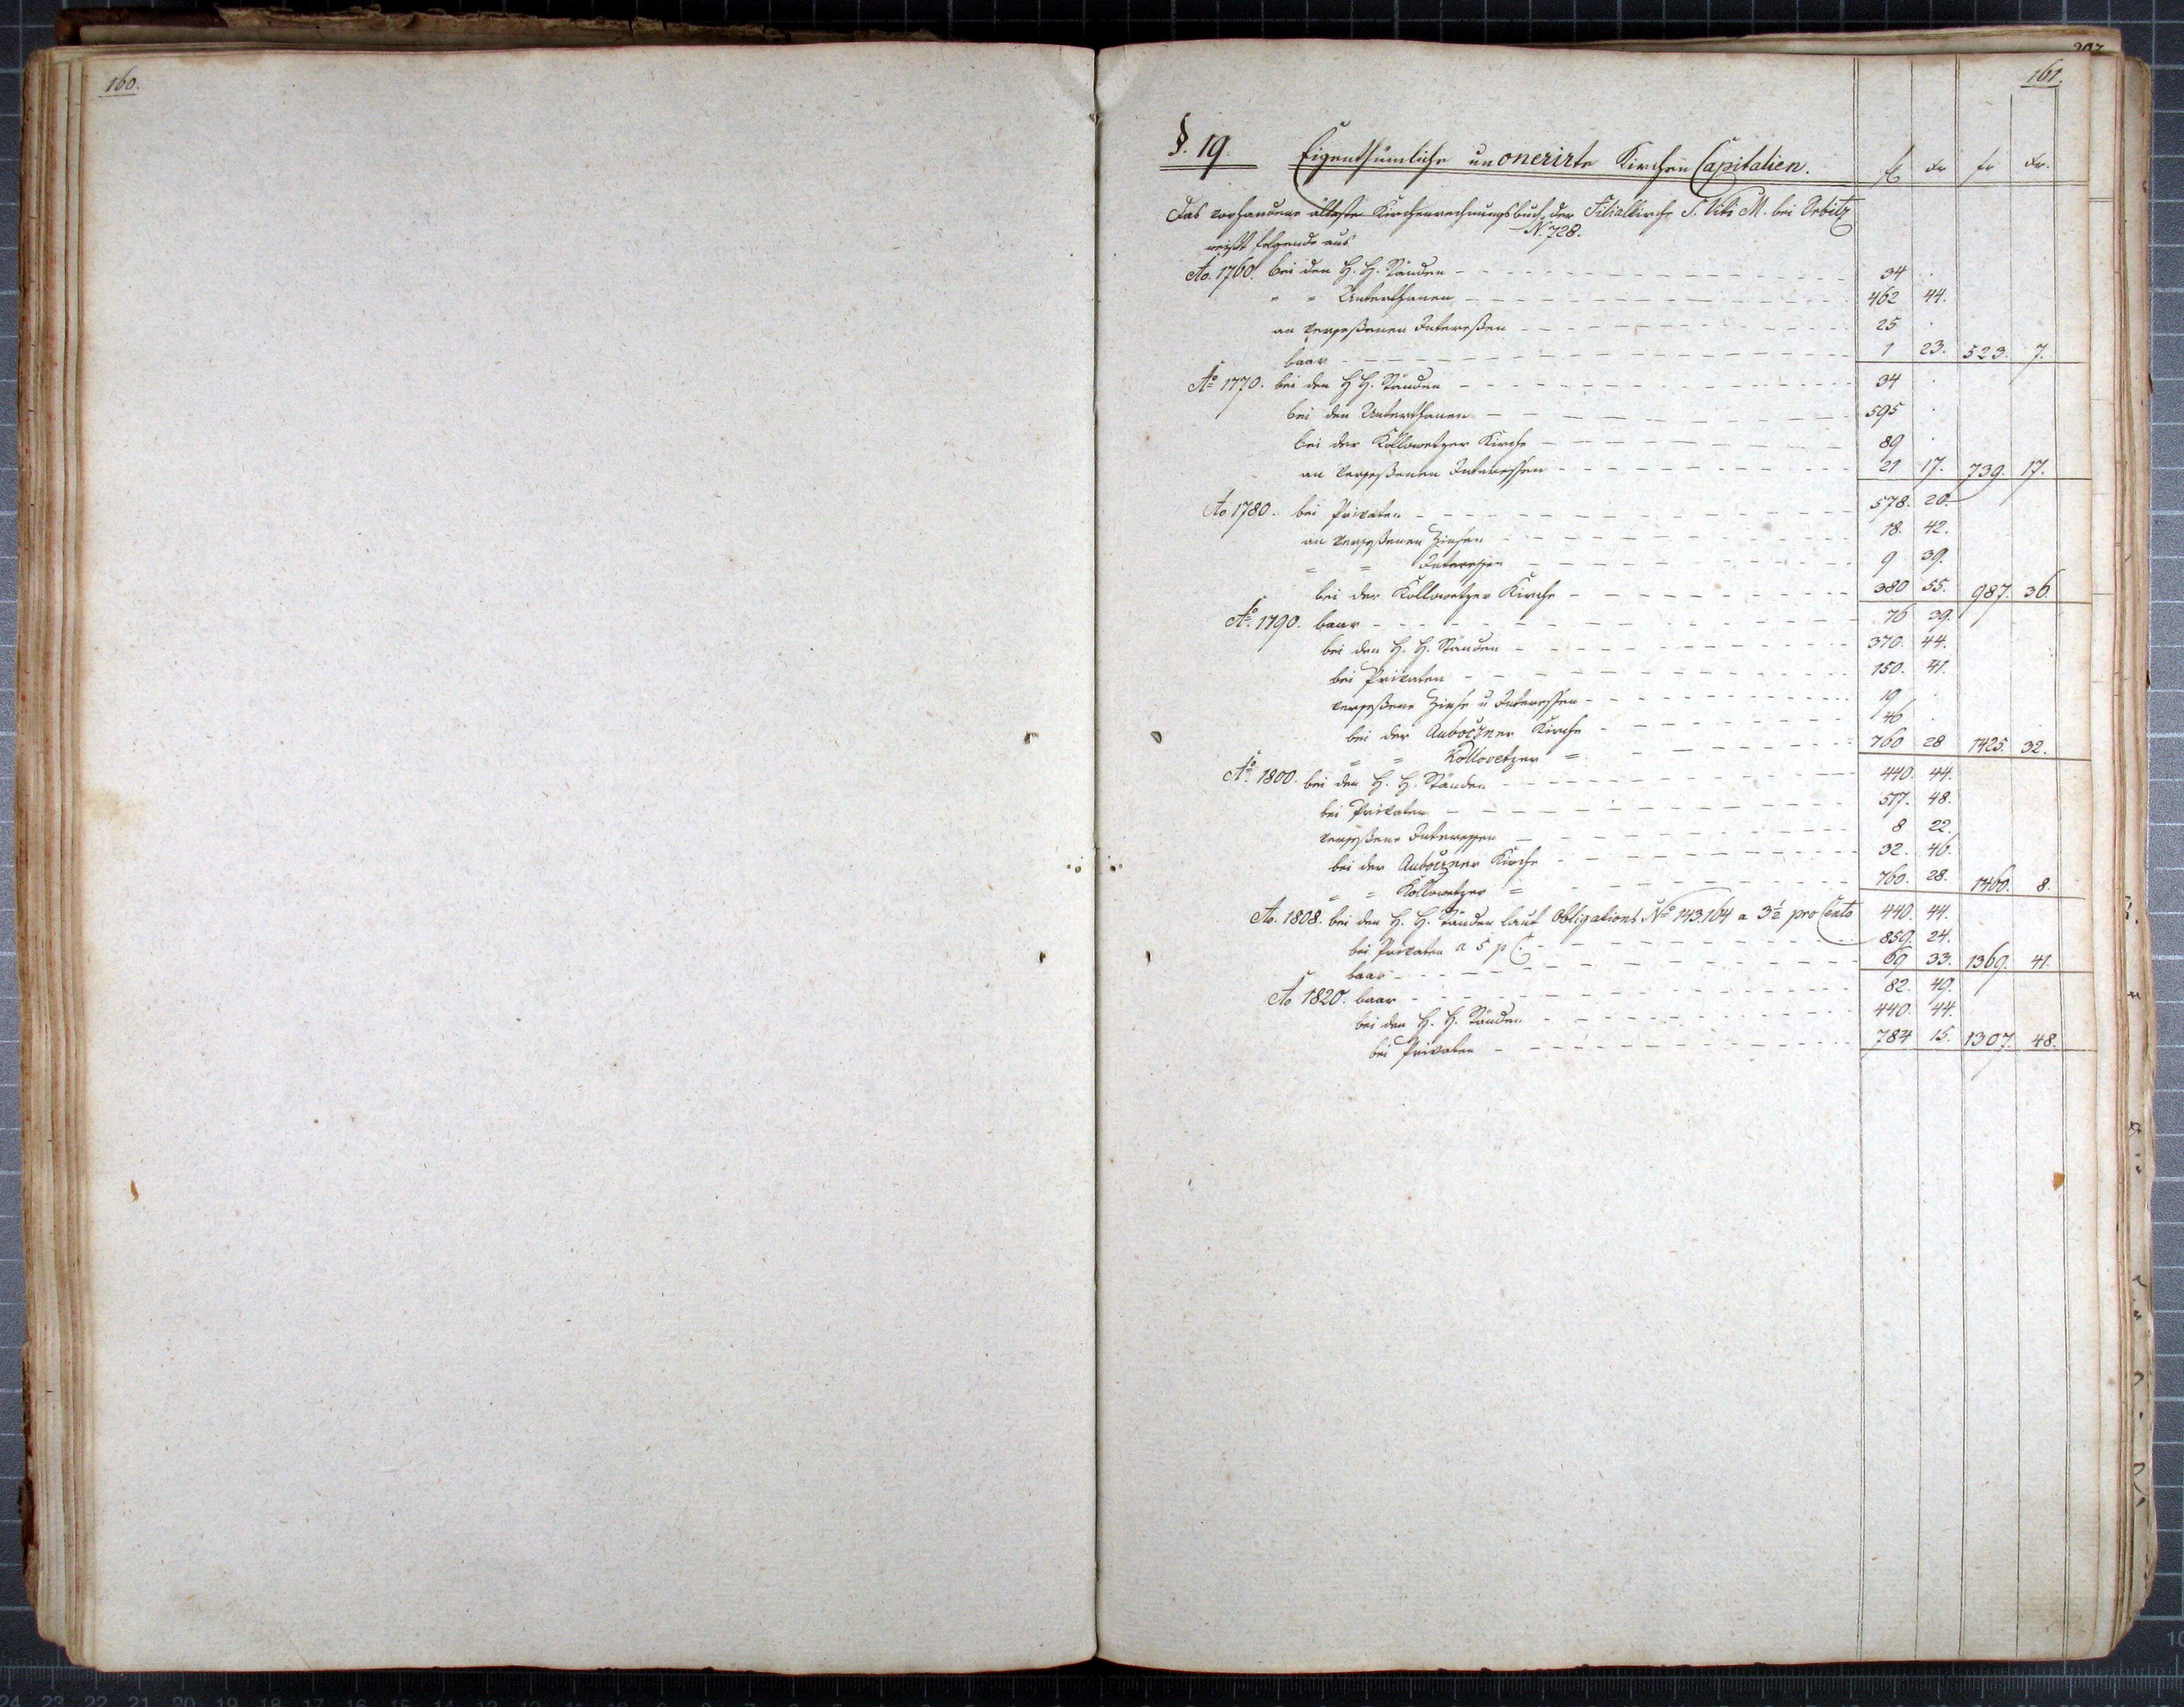 160.
161.
§. 19. Eigenthümliche unonerirte Kirchen Capitalien. fl xr fl xr.
Das vorhandene älteste Kirchenrechnungsbuch der Filialkirche S. Viti M. bei
N. 728.
weißt folgende aus
Ao. 1760. bei den H. H. Ständen 34 .
" " Unterthanen 462 44.
an versessenen Interessen 25 .
baar 1 23. 523. 7.
Ao 1770. bei den H H. Ständen 34 .
bei den Unterthanen 595 .
bei der Kollowetzer Kirche 89 .
an versessenen Interessen 21 17. 739. 17.
Ao 1780. bei Privaten 578. 20.
an versessenen Zinsen 18. 42.
= = Interessen 9 39.
bei der Kollowetzer Kirche 380 55. 987. 36.
Ao. 1790. baar 76 39.
bei den H. H. Ständen 370. 44.
bei Privaten 150. 41.
versessene Zinse u Interessen 19 .
bei der Auboczner Kirche 46 .
= = Kollovetzer = 760 28 1425. 32.
Ao. 1800. bei den H. H. Ständen 440. 44.
bei Privaten 517. 48.
versessene Interessen 8 22.
bei der Auboczner Kirche 32. 46.
= = Kollowetzer = 760. 28. 1460. 8.
Ao. 1808. bei den H. H. Ständen laut Obligations No 143.164 a 3½ pro Cento 440. 44.
bei Privaten a 5 p C. 859. 24.
baar 69 33. 1369. 41.
Ao 1820. baar 82. 49.
bei den H. H. Ständen 440. 44.
bei Privaten 784 15. 1307. 48.